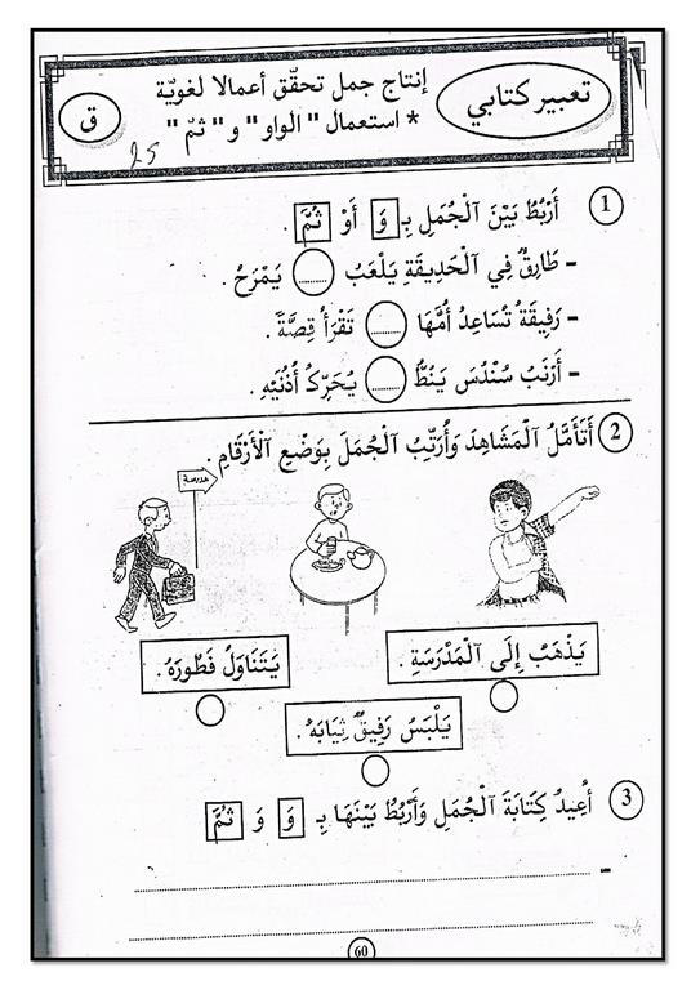 تعبير كتابي
إنتاج جمل تحقّق أعمالا لغويّة
* استعمال "الواو" و"ثمّ"
ق
25
1 أَرْبُطُ بَيْنَ ٱلْجُمَلِ بِـ وَ أَوْ ثُمَّ .
- طَارِقٌ فِي ٱلْحَدِيقَةِ يَلْعَبُ ...... يَمْرَحُ .
- رَفِيقَةُ تُسَاعِدُ أُمَّهَا ...... تَقْرَأُ قِصَّةً .
- أَرْنَبُ سُنْدُسَ يَنُطُّ ...... يُحَرِّكُ أُذُنَيْهِ .
2 أَتَأَمَّلُ ٱلْمَشَاهِدَ وَأُرَتِّبُ ٱلْجُمَلَ بِوَضْعِ ٱلْأَرْقَامِ .
مدرسة
يَذْهَبُ إِلَى ٱلْمَدْرَسَةِ .
يَتَنَاوَلُ فَطُورَهُ .
يَلْبَسُ رَفِيقٌ ثِيَابَهُ .
3 أُعِيدُ كِتَابَةَ ٱلْجُمَلِ وَأَرْبُطُ بَيْنَهَا بِـ وَ وَ ثُمَّ
-
60